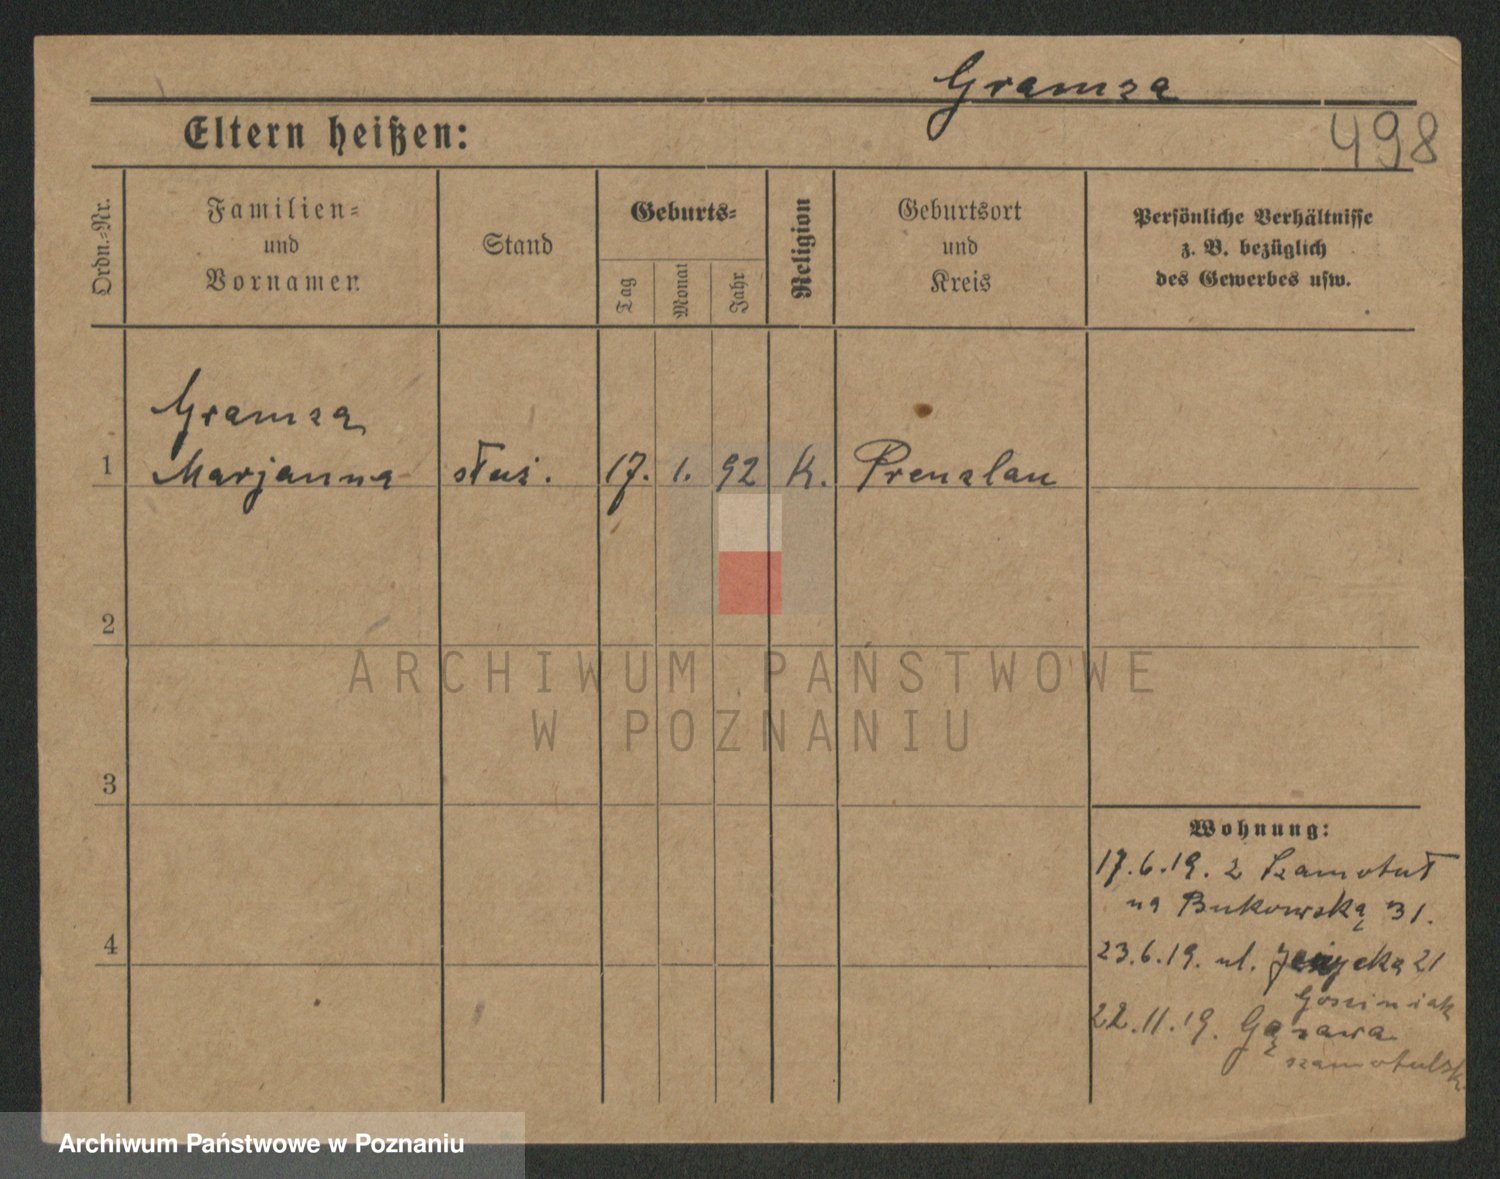 Gramza
498
Eltern heißen:
Ordn.-Nr.
Familien-
und
Vornamen
Stand
Geburts-
Tag
Monat
Jahr
Religion
Geburtsort
und
Kreis
Persönliche Verhältnisse
z. B. bezüglich
des Gewerbes usw.
Gramza
1 Marjanna służ. 17. 1. 92 K. Prenzlau
2
ARCHIWUM PAŃSTWOWE
W POZNANIU
3
Wohnung:
17.6.19. z Szamotuł
na Bukowską 31.
4
23.6.19. ul. Jeżycka 21
Gosciniak
22.11.19. Gąsawa
szamotulski
Archiwum Państwowe w Poznaniu